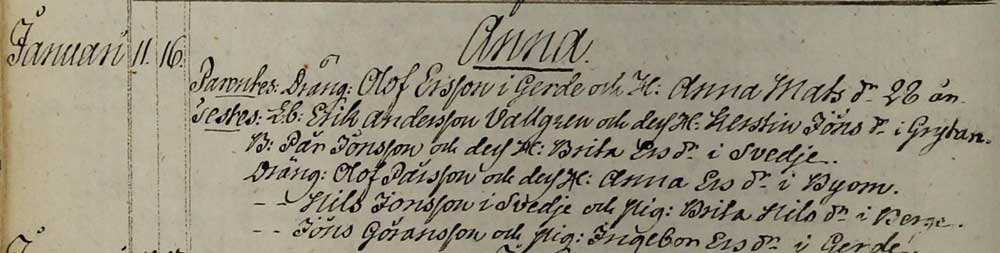 Januari 11. 16. Anna.
Parentes: Dräng: Olof Ersson i Gerde och H: Anna Mats dr 28 år.
Testes: Lb: Erik Andersson Vallgren och dess H: Kerstin Jöns dr i Grytan.
B: Pär Jönsson och dess H: Brita Ers dr i Svedje.
Dräng: Olof Pärsson och dess H: Anna Ers dr i Byom.
- - Nils Jonsson i Svedje och pig: Brita Nils dr i Berge.
- - Jöns Göransson och pig: Ingebor Ers dr i Gerde.